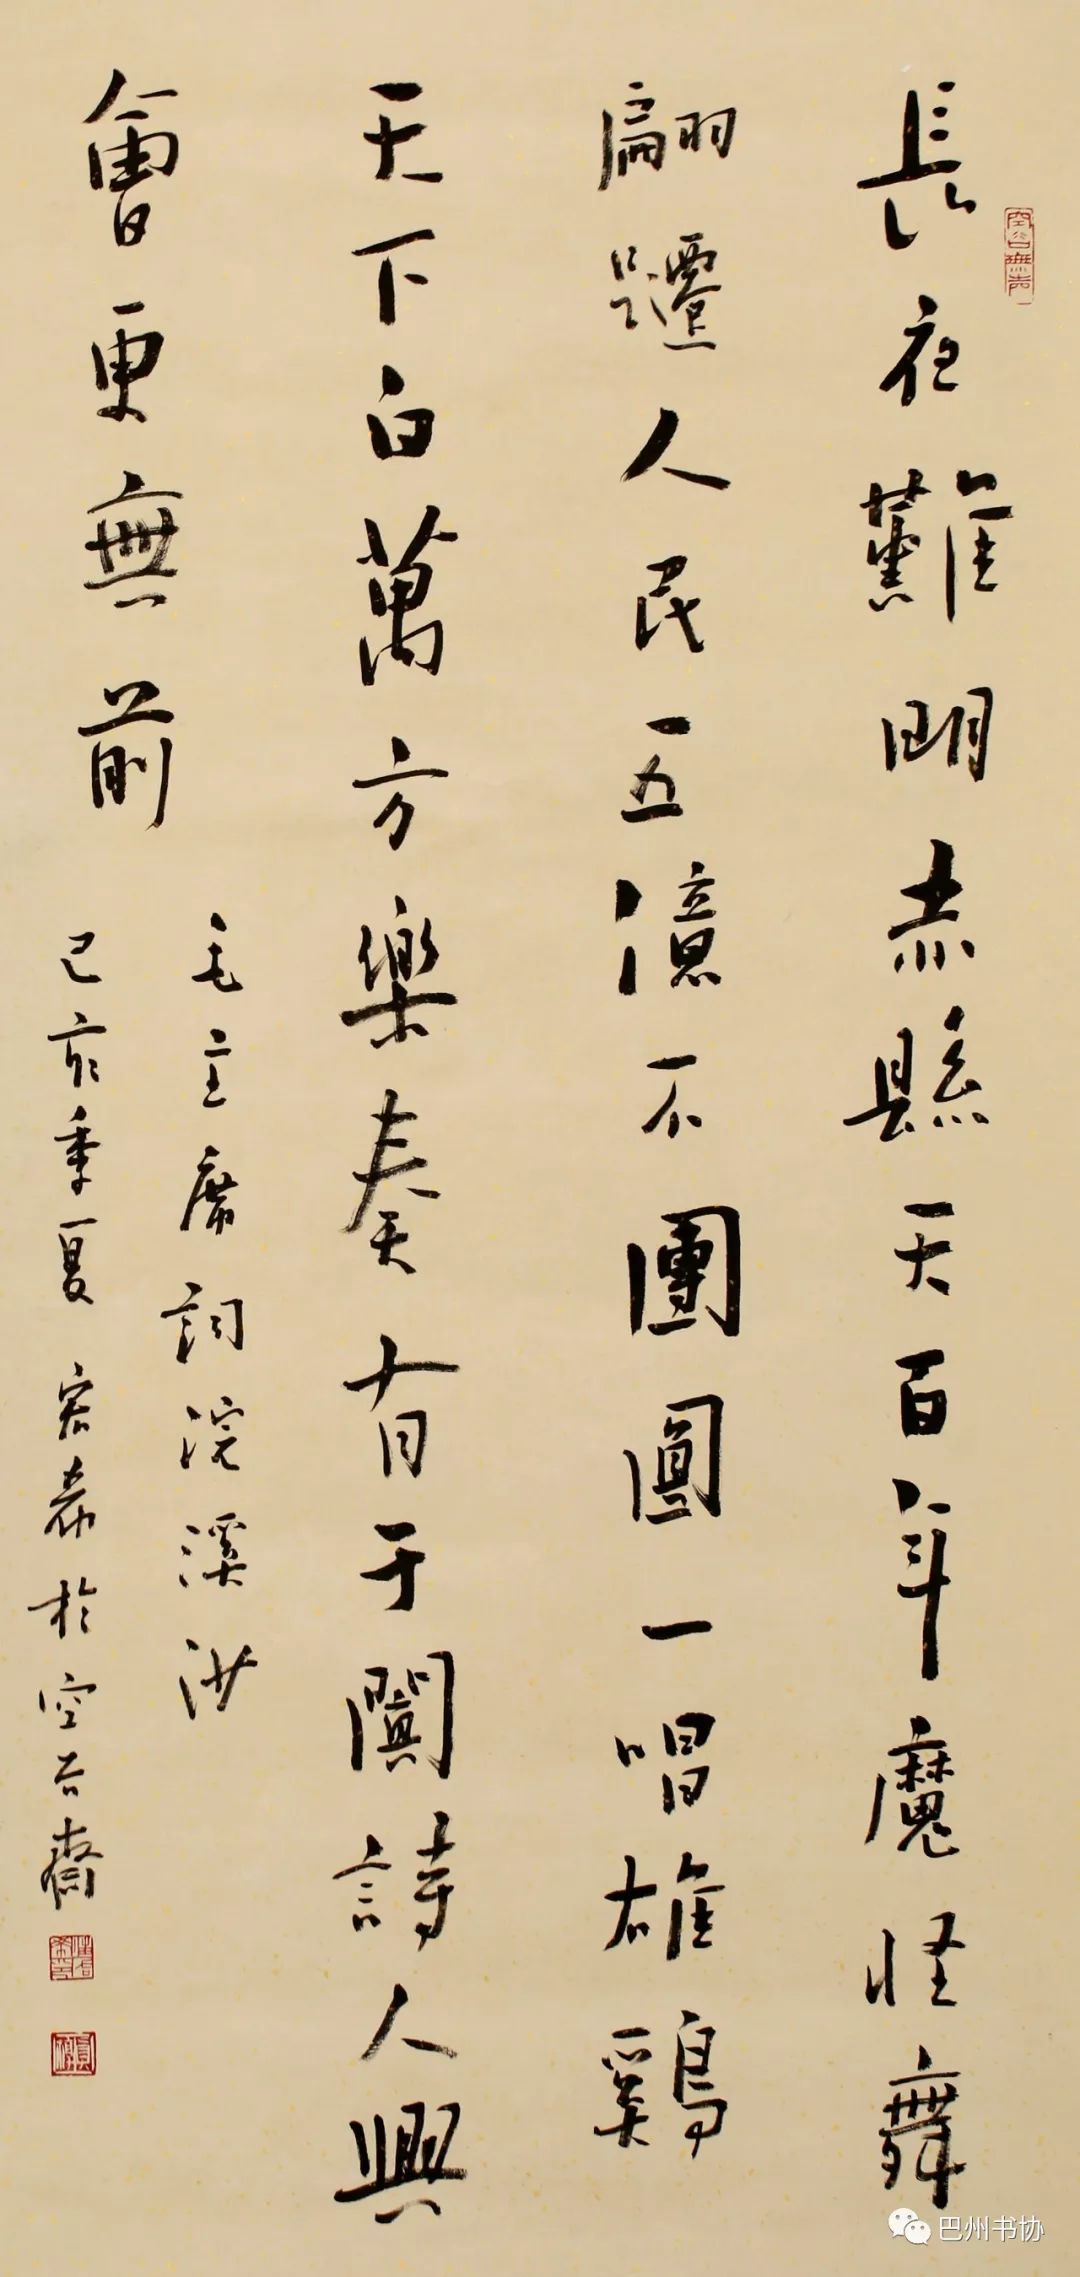 長夜難明赤縣天百年魔怪舞
翩躚人民五億不團圓一唱雄鷄
天下白萬方樂奏有于闐詩人興
會更無前
毛主席詞浣溪沙
己亥季夏宏希於空谷齋
巴州书协